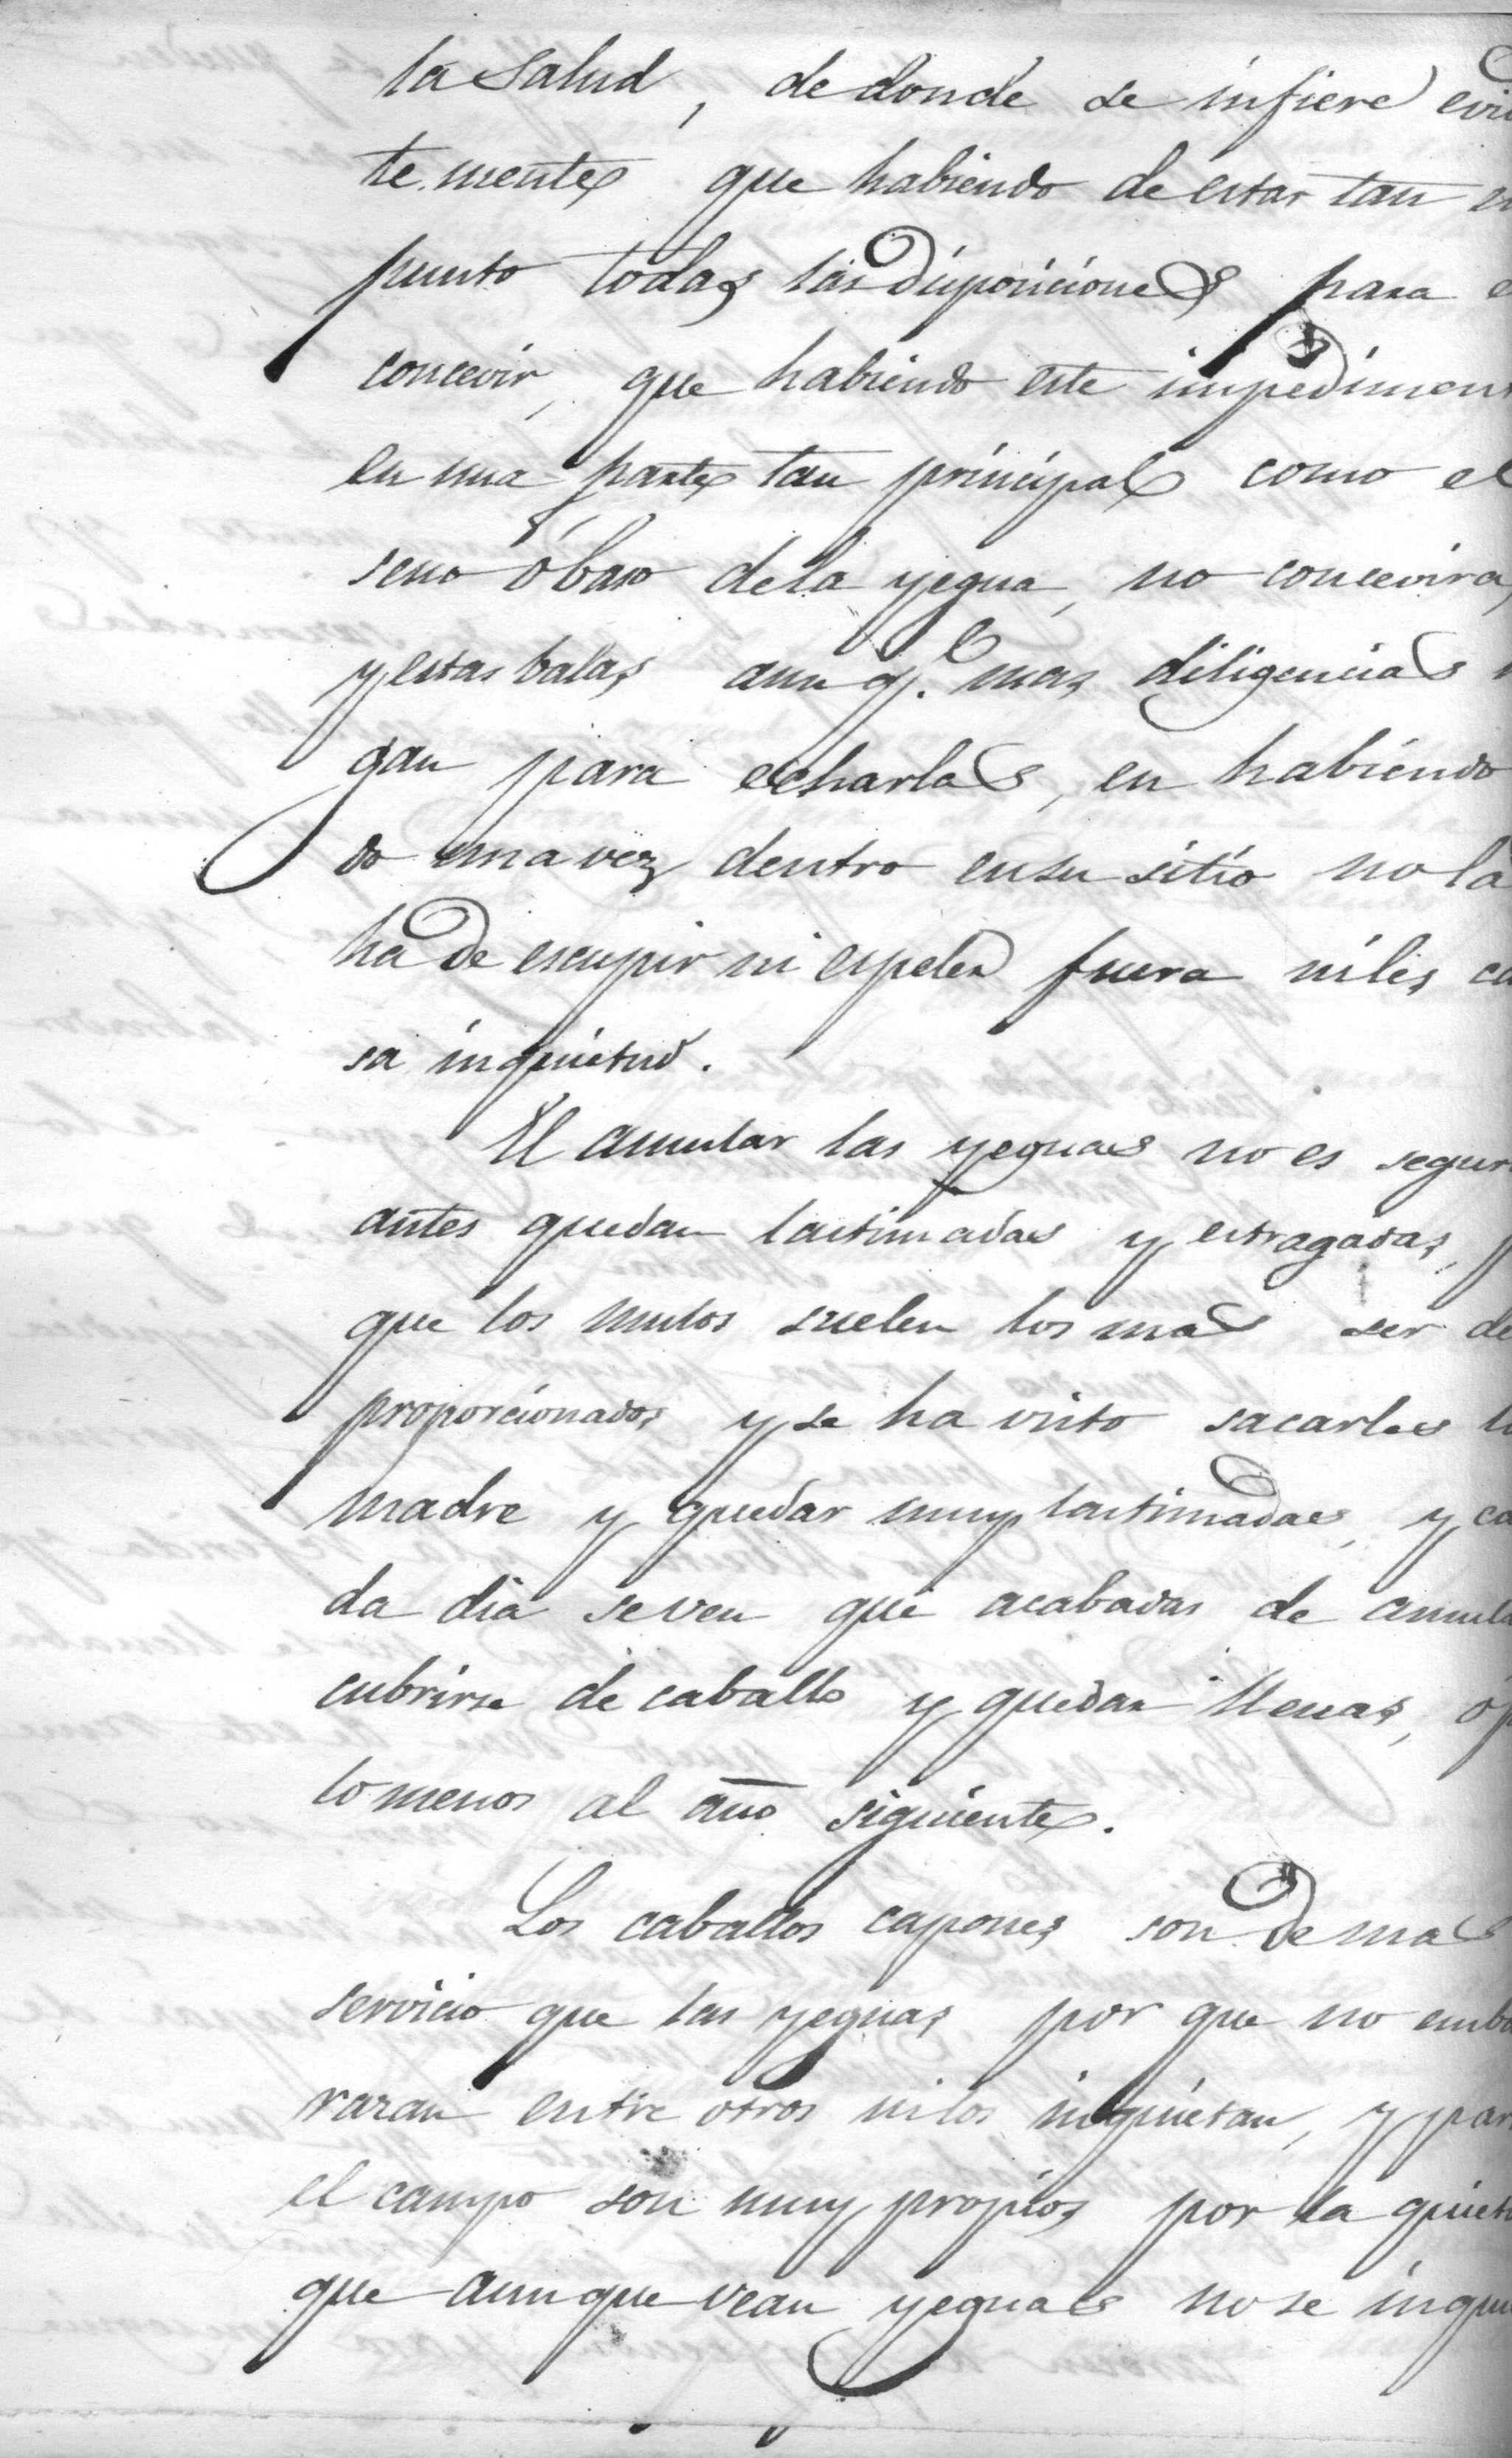 la Salud, de donde se infiere evi
temente que habiendo de estar tan
punto todas las disposiciones para
concevir, que habiendo este impedimen
en una parte tan principal como el
seno ó baso dela yegua, no concevira,
y estas balas aun q.e mas diligencias
gan para echarlas, en habiendo
do una vez dentro en su sitio no la
ha de escupir ni espeler fuera niles ca
sa inquietud.
El amular las yeguas no es segur
antes quedan lastimadas y estragadas, p
que los mulos suelen los mas ser de
proporcionados y se ha visto sacarles
madre y quedar muy lastimadas, y ca
da dia seven que acabadas de amula
cubrirse de caballo y quedar llenas, op
lo menos al año siguiente.
Los caballos capones son de mas
servicio que las yeguas por que no emba
razan entre otros nilos inquietan, y par
el campo son muy propios por la quiet
que aun que vean yeguas no se inqui